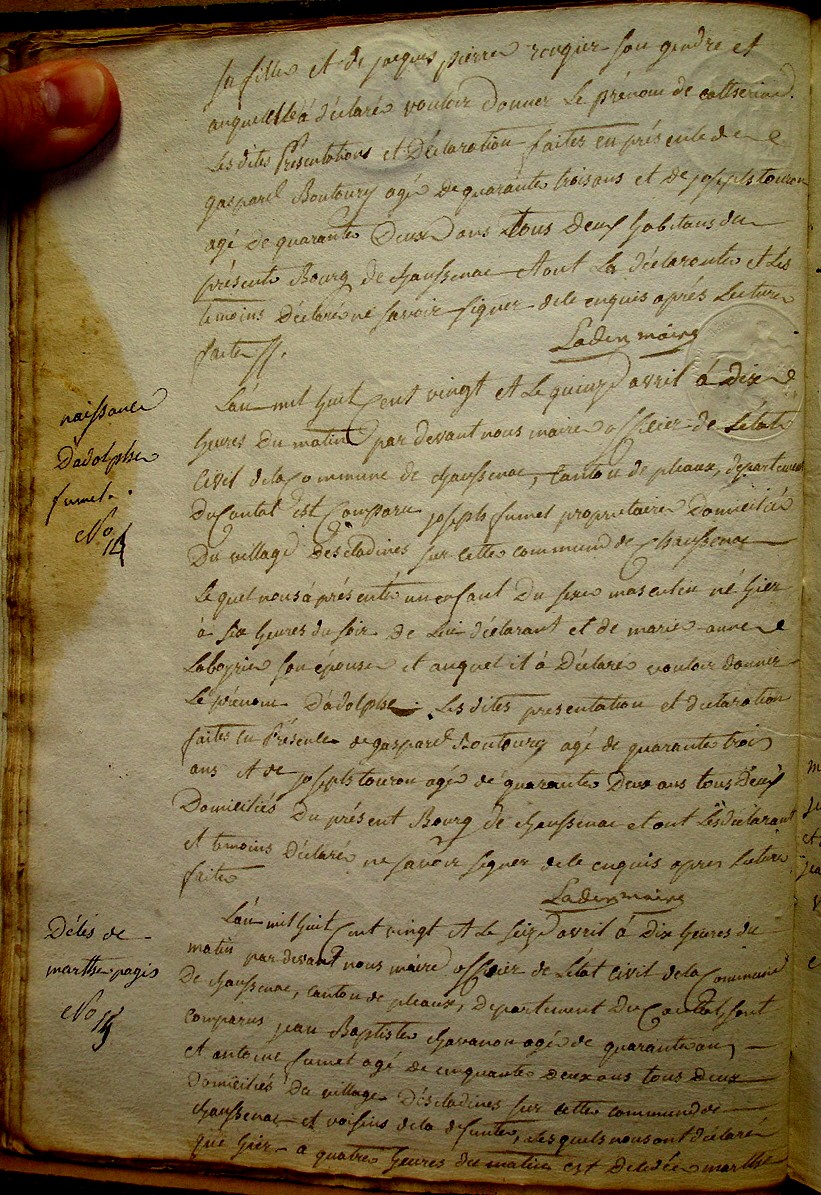 sa fille et de jacques pierre rougier son gendre et
auquel elle à déclaré vouloir donner Le prénom de catherine.
Les dites Présentations et Déclaration faites en présence de
gasparel Boutoury agé de quarante trois ans et de joseph touron
agé de quarante Deux ans tous Deux habitans du
présent Bourg de chaussenac et ont La déclarante et Les
temoins Déclaré ne savoir signer de ce enquis après Lecture
faite
Laden maire
naissance
Dadolphe
fumel.
No 14
Lan mil huit Cent vingt et Le quinze avril à dix
heures Du matin par devant nous maire officier de Létat
Civil de la Commune de chaussenac, canton de pleaux, département
Du Cantal est Comparu joseph fumel proprietaire Domicilié
Du village Descladines sur cette commune de Chaussenac
Le quel nous à présenté un enfant Du sexe masculin né hier
à six heures du soir de Lui déclarant et de marie anne
Laboyrie son épouse et auquel il à Déclaré vouloir donner
Le prénom Dadolphe. Les dites presentation et declaration
faites en Présence de gasparel Boutoury agé de quarante trois
ans et de joseph touron agé de quarante Deux ans tous Deux
Domiciliés Du présent Bourg de chaussenac et ont Les déclarant
et temoins Déclaré ne savoir signer de ce enquis apres Lecture
faite
Laden maire
Décès de
marthe pagis
No 15
Lan mil huit Cent vingt et Le seize avril à Dix heures du
matin par devant nous maire officier de Létat Civil de la Commune
De chaussenac, canton de pleaux, Departement Du Cantal sont
comparus jean Baptiste chavanon agé de quarante ans
et antoine fumel agé de cinquante deux ans tous Deux
Domiciliés du village Descladines sur cette commune de
chaussenac et voisins de la defunte, Lesquels nous ont déclaré
que hier a quatre heures du matin est Decedée marthe